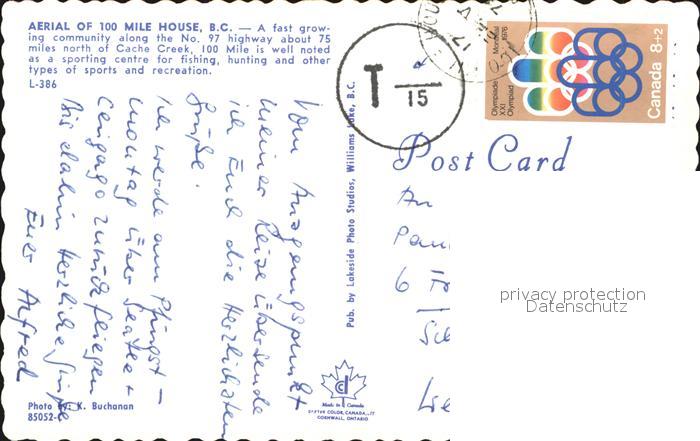 AERIAL OF 100 MILE HOUSE, B.C. — A fast grow-
ing community along the No. 97 highway about 75
miles north of Cache Creek, 100 Mile is well noted
as a sporting centre for fishing, hunting and other
types of sports and recreation.
L-386
T
15
Olympiade XXI Olympiad
Montréal 1976
Canada 8+2
Post Card
Vom Ausgangspunkt
meiner Reise übersende
ich Euch die herzlichsten
Grüße.
Ich werde am Pfingst-
montag über Seattle +
Chicago zurückfliegen
Bis dahin herzliche Grüße
Euer Alfred
An
6
Pub. by Lakeside Photo Studios, Williams Lake, B.C.
privacy protection
Datenschutz
Made in Canada
CORNWALL, ONTARIO
Photo by: K. Buchanan
85052-C